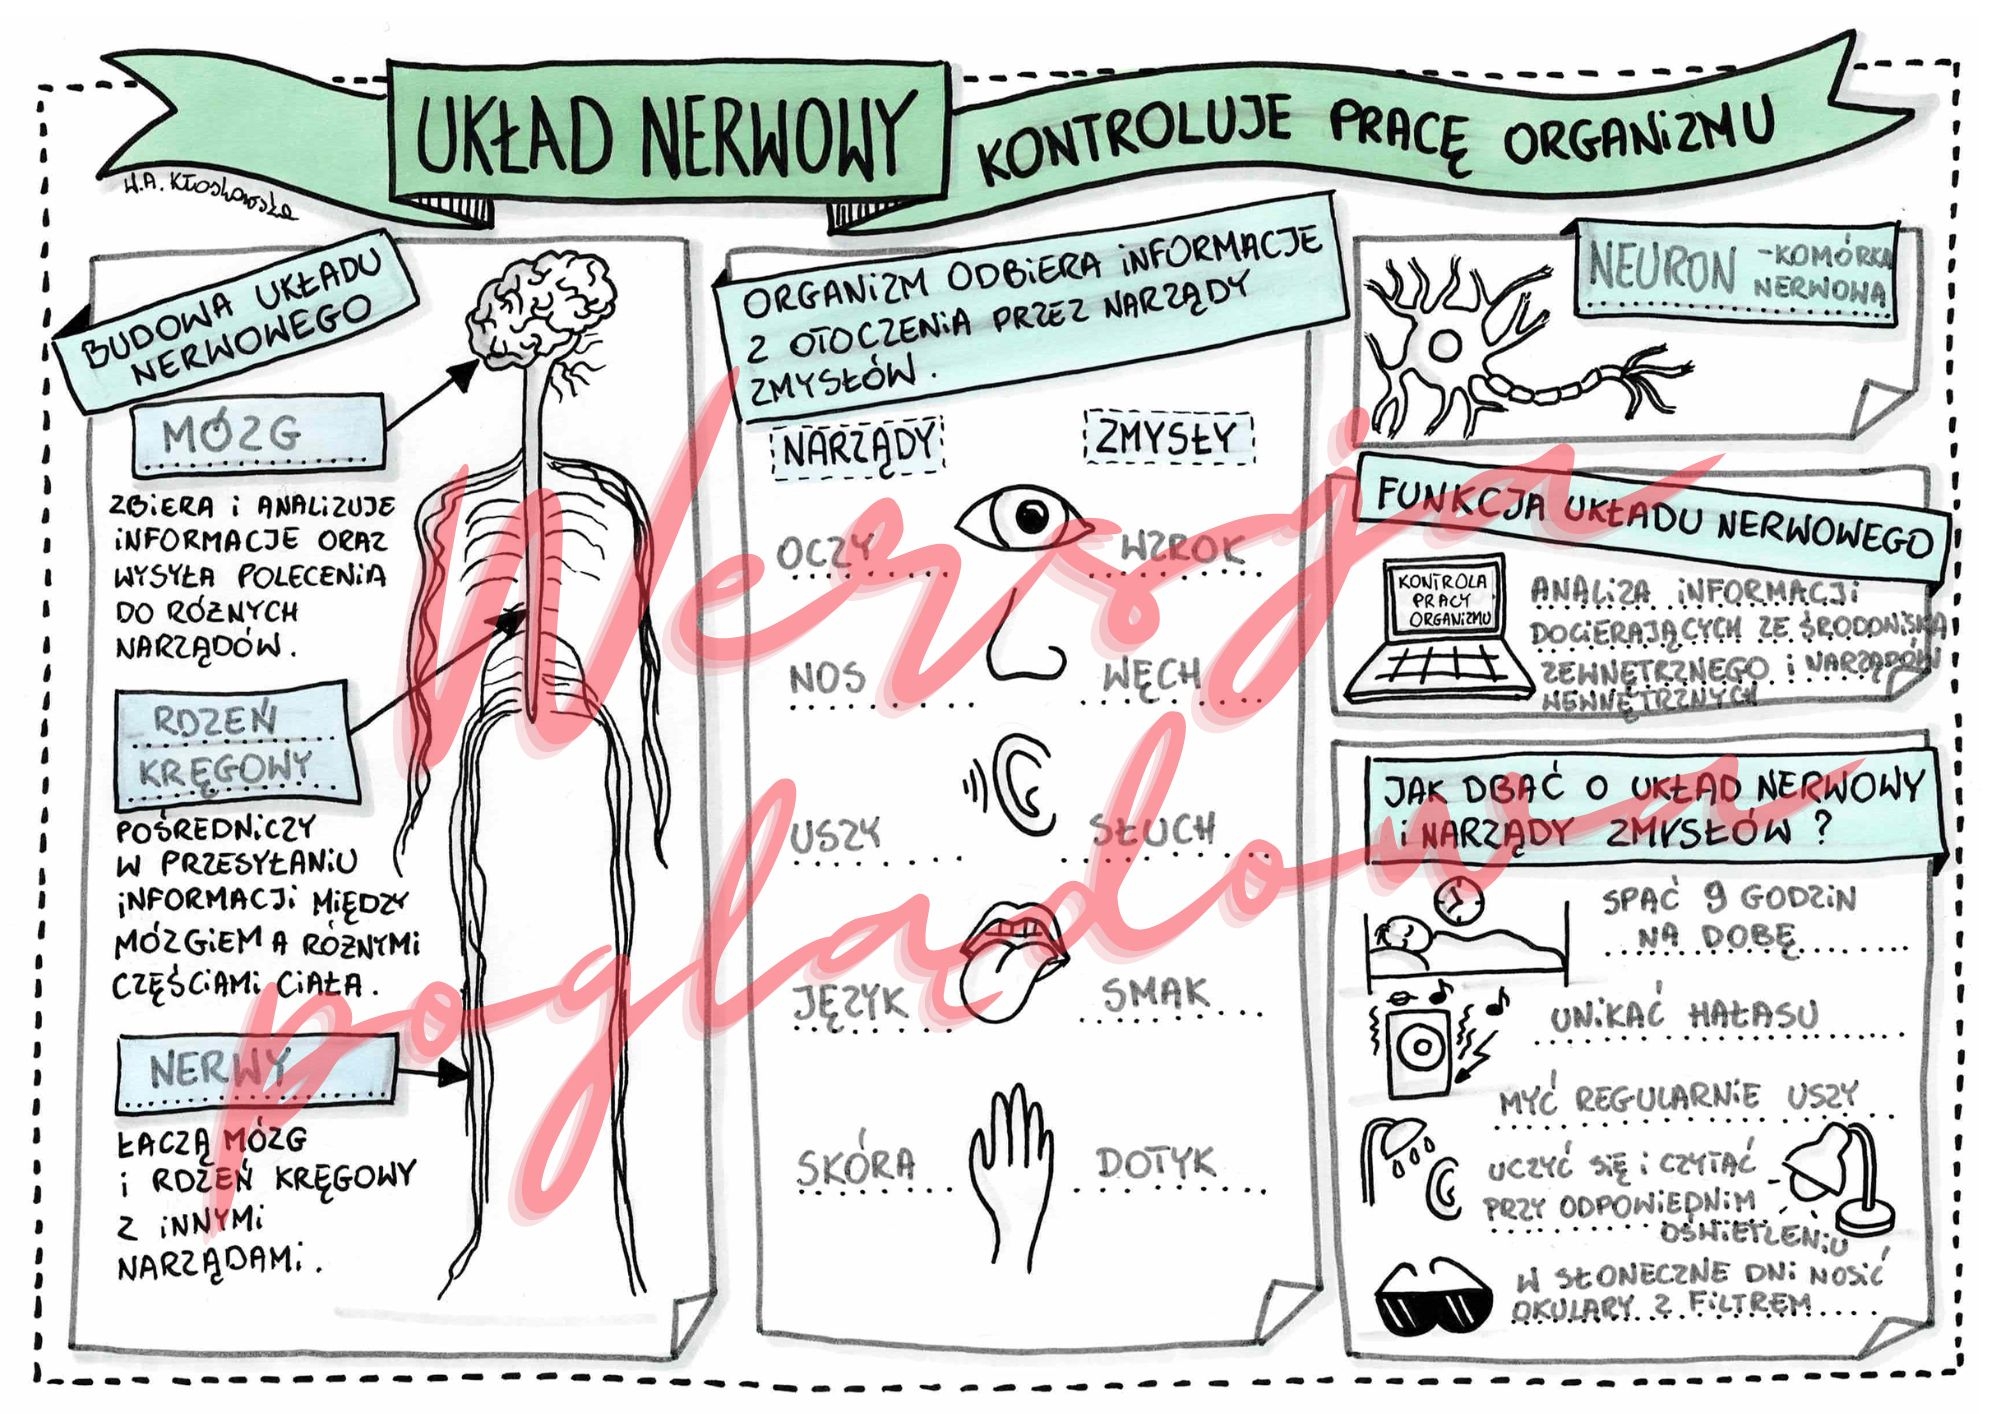 UKŁAD NERWOWY KONTROLUJE PRACĘ ORGANiZMU
W.A. Kłoskowska
BUDOWA UKŁADU
NERWOWEGO
MÓZG
ZBiERA i ANALiZUJE
iNFORMACJE ORAZ
WYSYŁA POLECENiA
DO RÓŻNYCH
NARZĄDÓW.
RDZEŃ
KRĘGOWY
POŚREDNiCZY
W PRZESYŁANiU
iNFORMACJi MiĘDZY
MÓZGiEM A RÓŻNYMi
CZĘŚCiAMi CiAŁA.
NERWY
ŁĄCZĄ MÓZG
i RDZEŃ KRĘGOWY
Z iNNYMi
NARZĄDAMi.
ORGANiZM ODBiERA iNFORMACJE
Z OTOCZENiA PRZEZ NARZĄDY
ZMYSŁÓW.
NARZĄDY ZMYSŁY
OCZY WZROK
NOS WĘCH
USZY SŁUCH
JĘZYK SMAK
SKÓRA DOTYK
NEURON -KOMÓRKA
NERWOWA
FUNKCJA UKŁADU NERWOWEGO
KONTROLA
PRACY
ORGANiZMU
ANALiZA iNFORMACJi
DOCiERAJĄCYCH ZE ŚRODOWiSKA
ZEWNĘTRZNEGO i NARZĄDÓW
WEWNĘTRZNYCH
JAK DBAĆ O UKŁAD NERWOWY
i NARZĄDY ZMYSŁÓW?
SPAĆ 9 GODZiN
NA DOBĘ
UNiKAĆ HAŁASU
MYĆ REGULARNiE USZY
UCZYĆ SiĘ i CZYTAĆ
PRZY ODPOWiEDNiM
OŚWiETLENiU
W SŁONECZNE DNi NOSiĆ
OKULARY Z FiLTREM
Wersja
poglądowa